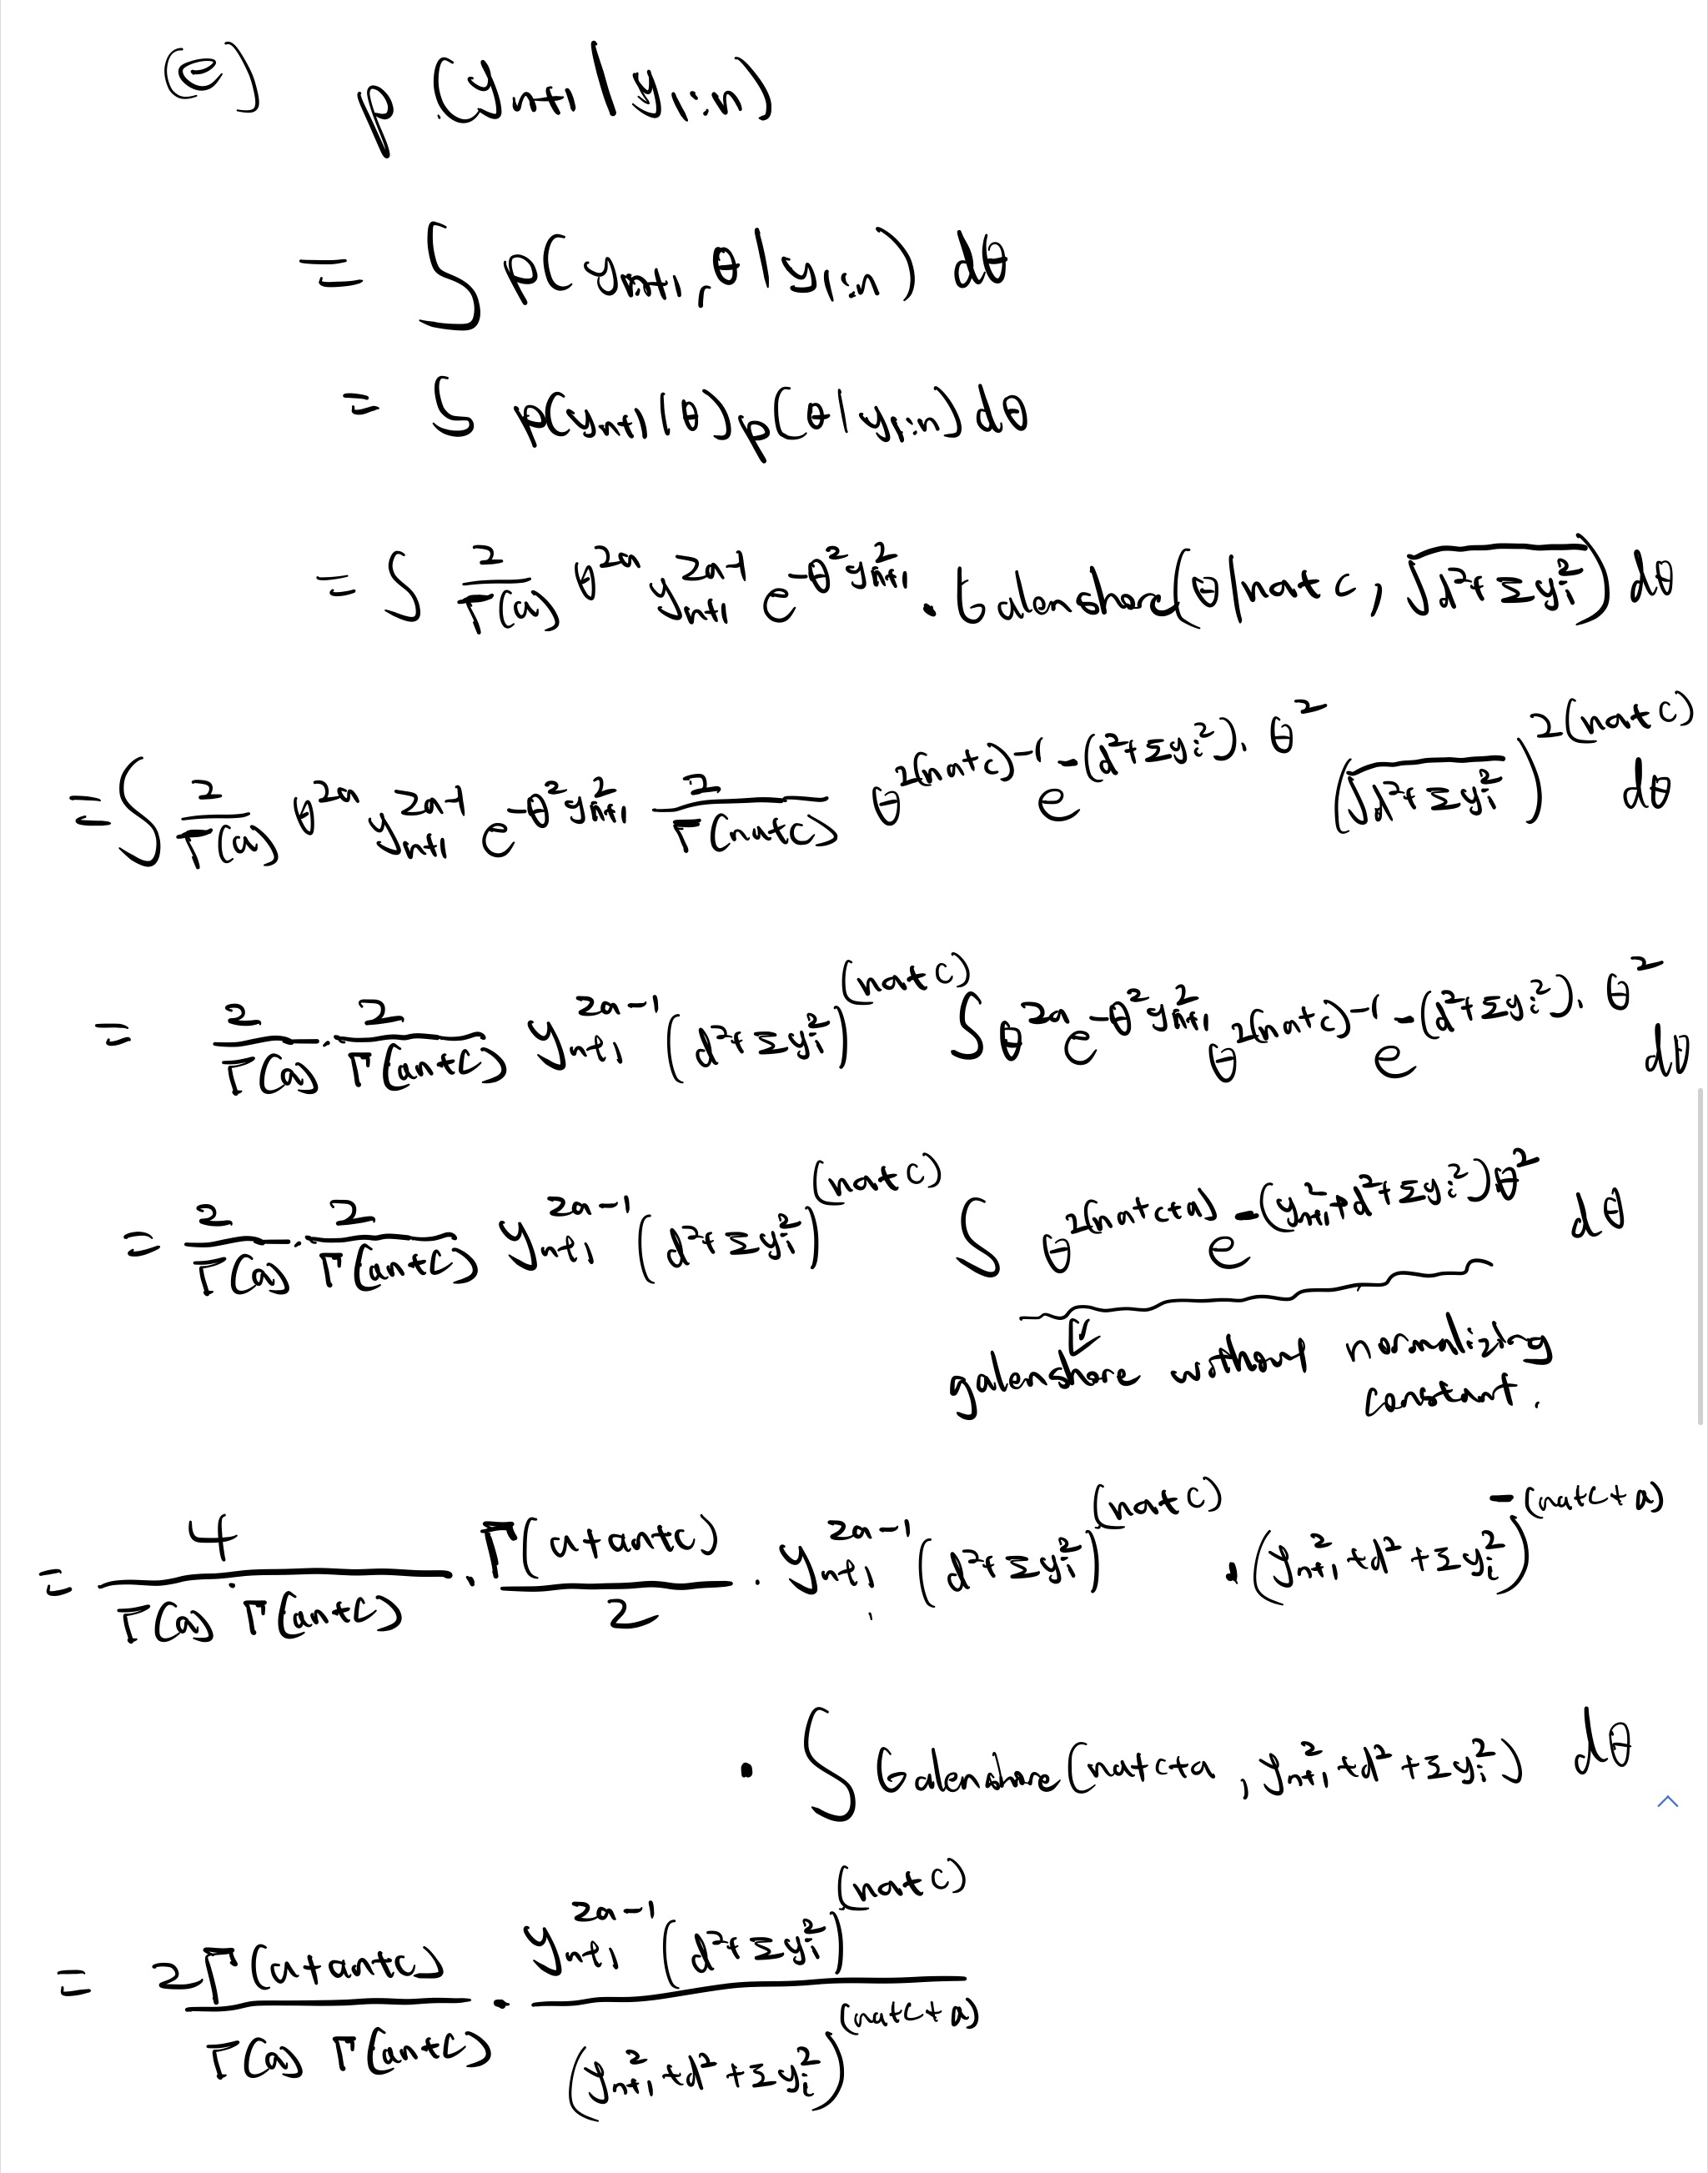 (e) p(y_{n+1} | y_{1:n})
= ∫ p(y_{n+1}, θ | y_{1:n}) dθ
= ∫ p(y_{n+1} | θ) p(θ | y_{1:n}) dθ
= ∫ 2/Γ(a) θ^{2a} y_{n+1}^{2a-1} e^{-θ² y_{n+1}²} · Galenshore(θ | na+c, √(d²+Σy_i²)) dθ
= ∫ 2/Γ(a) θ^{2a} y_{n+1}^{2a-1} e^{-θ² y_{n+1}²} 2/Γ(na+c) θ^{2(na+c)-1} e^{-(d²+Σy_i²)·θ²} (√(d²+Σy_i²))^{2(na+c)} dθ
= 2/Γ(a) · 2/Γ(an+c) y_{n+1}^{2a-1} (d²+Σy_i²)^{(na+c)} ∫ θ^{2a} e^{-θ² y_{n+1}²} θ^{2(na+c)-1} e^{-(d²+Σy_i²)·θ²} dθ
= 2/Γ(a) · 2/Γ(an+c) y_{n+1}^{2a-1} (d²+Σy_i²)^{(na+c)} ∫ θ^{2(na+c+a)} e^{-(y_{n+1}²+d²+Σy_i²)θ²} dθ
galenshore without normalizing
constant.
= 4/(Γ(a)·Γ(an+c)) · Γ(a+an+c)/2 · y_{n+1}^{2a-1} (d²+Σy_i²)^{(na+c)} · (y_{n+1}²+d²+Σy_i²)^{-(na+c+a)}
· ∫ Galenshore(na+c+a, y_{n+1}²+d²+Σy_i²) dθ
= 2Γ(a+an+c)/(Γ(a) Γ(an+c)) · y_{n+1}^{2a-1} (d²+Σy_i²)^{(na+c)} / (y_{n+1}²+d²+Σy_i²)^{(na+c+a)}